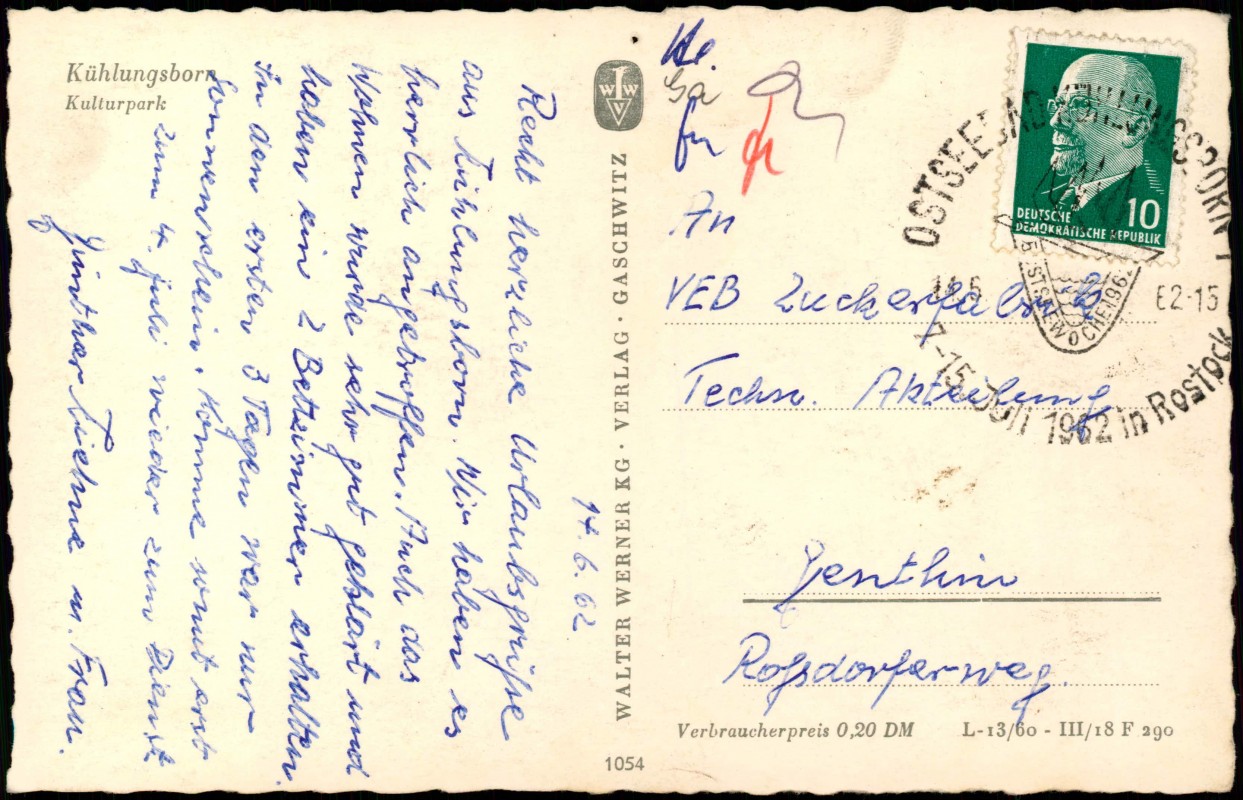 Kühlungsborn
Kulturpark
14. 6. 62
Recht herzliche Urlaubsgrüße
aus Kühlungsborn. Wir haben es
herrlich angetroffen. Auch das
Wohnen wurde sehr gut geklärt und
haben ein 2 Bettzimmer erhalten.
In den ersten 3 Tagen war nur
Sonnenschein. Komme somit erst
zum 4. Juli wieder zum Dienst
Günther u. Frau.
WALTER WERNER KG · VERLAG · GASCHWITZ
1054
An
VEB Zuckerfabrik
Techn. Abteilung
Genthin
Roßdorferweg.
Verbraucherpreis 0,20 DM
L-13/60 - III/18 F 290
DEUTSCHE
DEMOKRATISCHE REPUBLIK
10
OSTSEEBAD KÜHLUNGSBORN 1
62-15
OSTSEEWOCHE 1962
7-15. Juli 1962 in Rostock